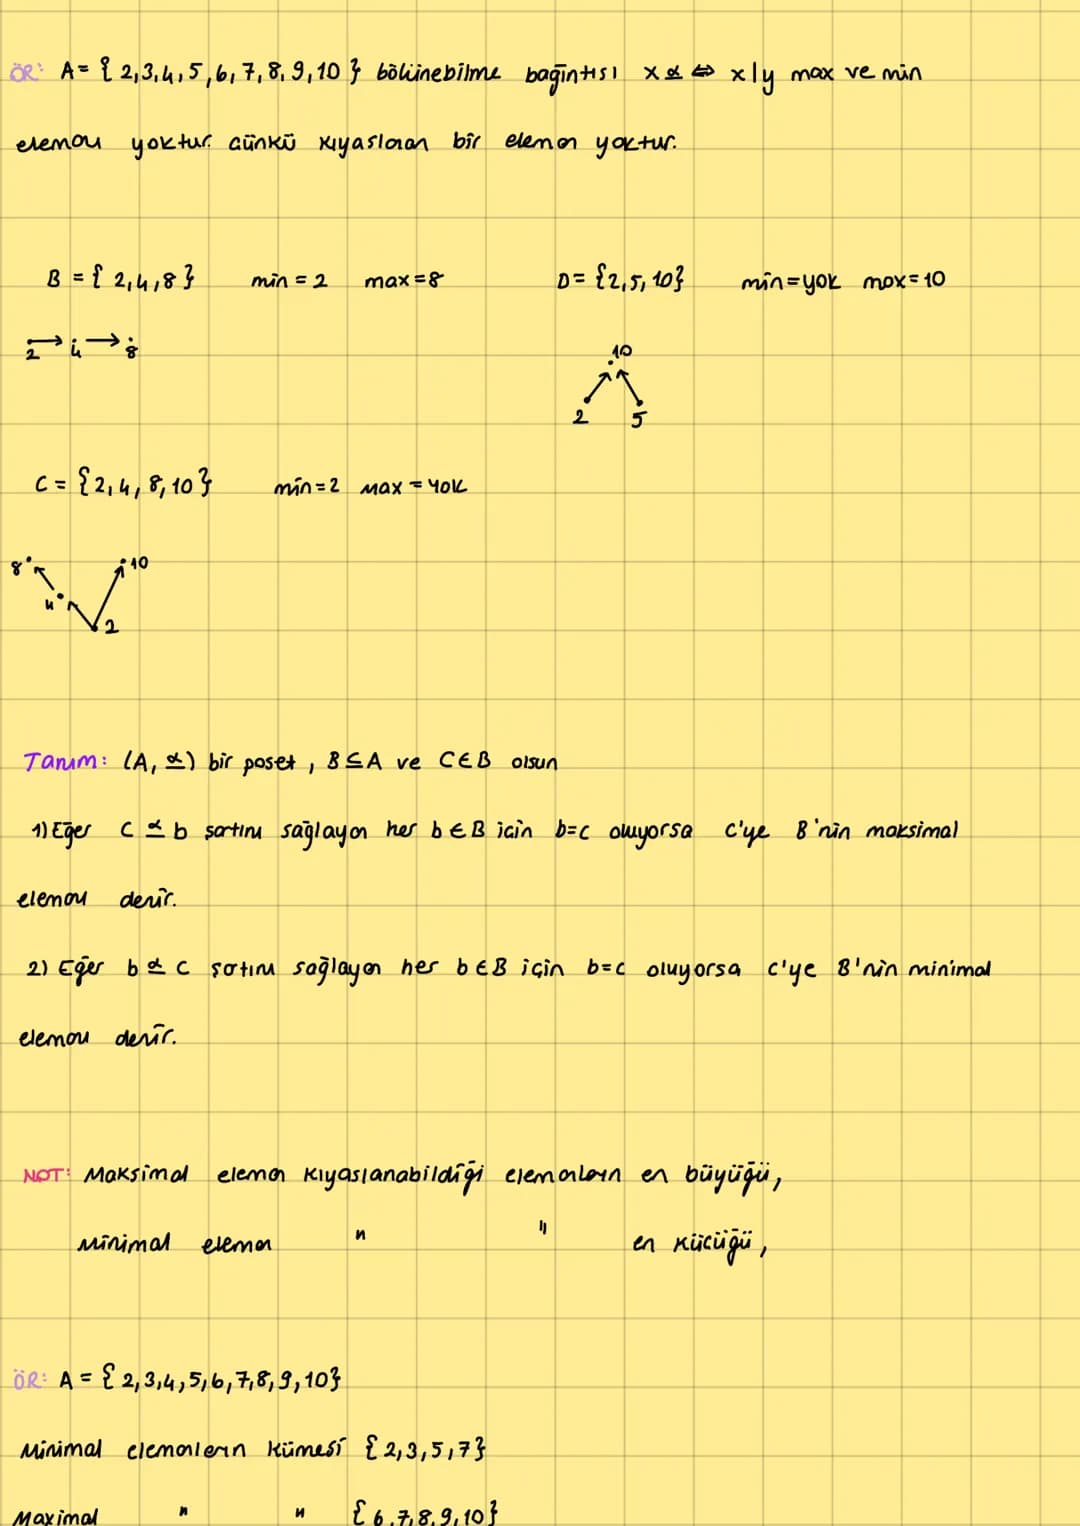 ÖR: A = { 2,3,4,5,6,7,8,9,10 } bölünebilme bağıntısı x ⪯ ⇔ x|y max ve min
elemanı yoktur. Çünkü kıyaslanan bir eleman yoktur.
B = { 2,4,8 } min = 2 max = 8 D = {2,5,10} min = yok max = 10
2 → 4 → 8
10
2 5
C = {2,4,8,10} min = 2 max = YOK
8 10
4
2
Tanım: (A, ⪯) bir poset, B ⊆ A ve C ∈ B olsun
1) Eğer c ⪯ b şartını sağlayan her b ∈ B için b=c oluyorsa c'ye B'nin maksimal
elemanı denir.
2) Eğer b ⪯ c şartını sağlayan her b ∈ B için b=c oluyorsa c'ye B'nin minimal
elemanı denir.
NOT: Maksimal eleman kıyaslanabildiği elemanların en büyüğü,
Minimal eleman " " en küçüğü,
ÖR: A = { 2,3,4,5,6,7,8,9,10}
Minimal elemanların kümesi { 2,3,5,7 }
Maximal " " { 6,7,8,9,10 }